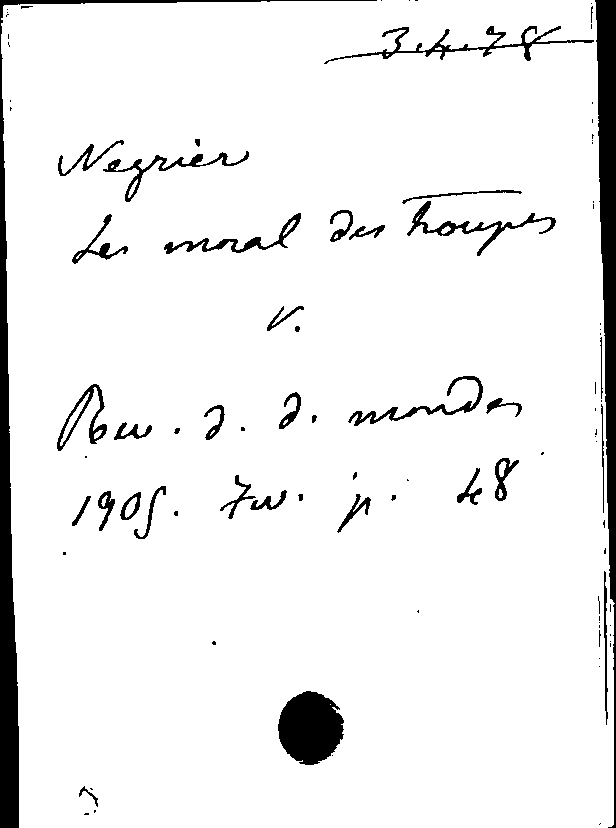 3.4.78
Negrier
Les moral des troupes
v.
Rev. d. d. mondes
1905. p. 48